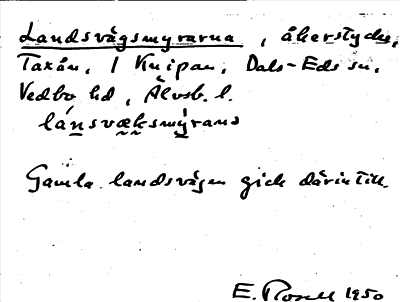 Landsvägsmyrarna, åkerstycke,
Taxån, 1 Knipan, Dals-Eds sn,
Vedbo hd, Älvsb. l.
lánsvæksmỳrana
Gamla landsvägen gick därintill.
E. Rosell 1950